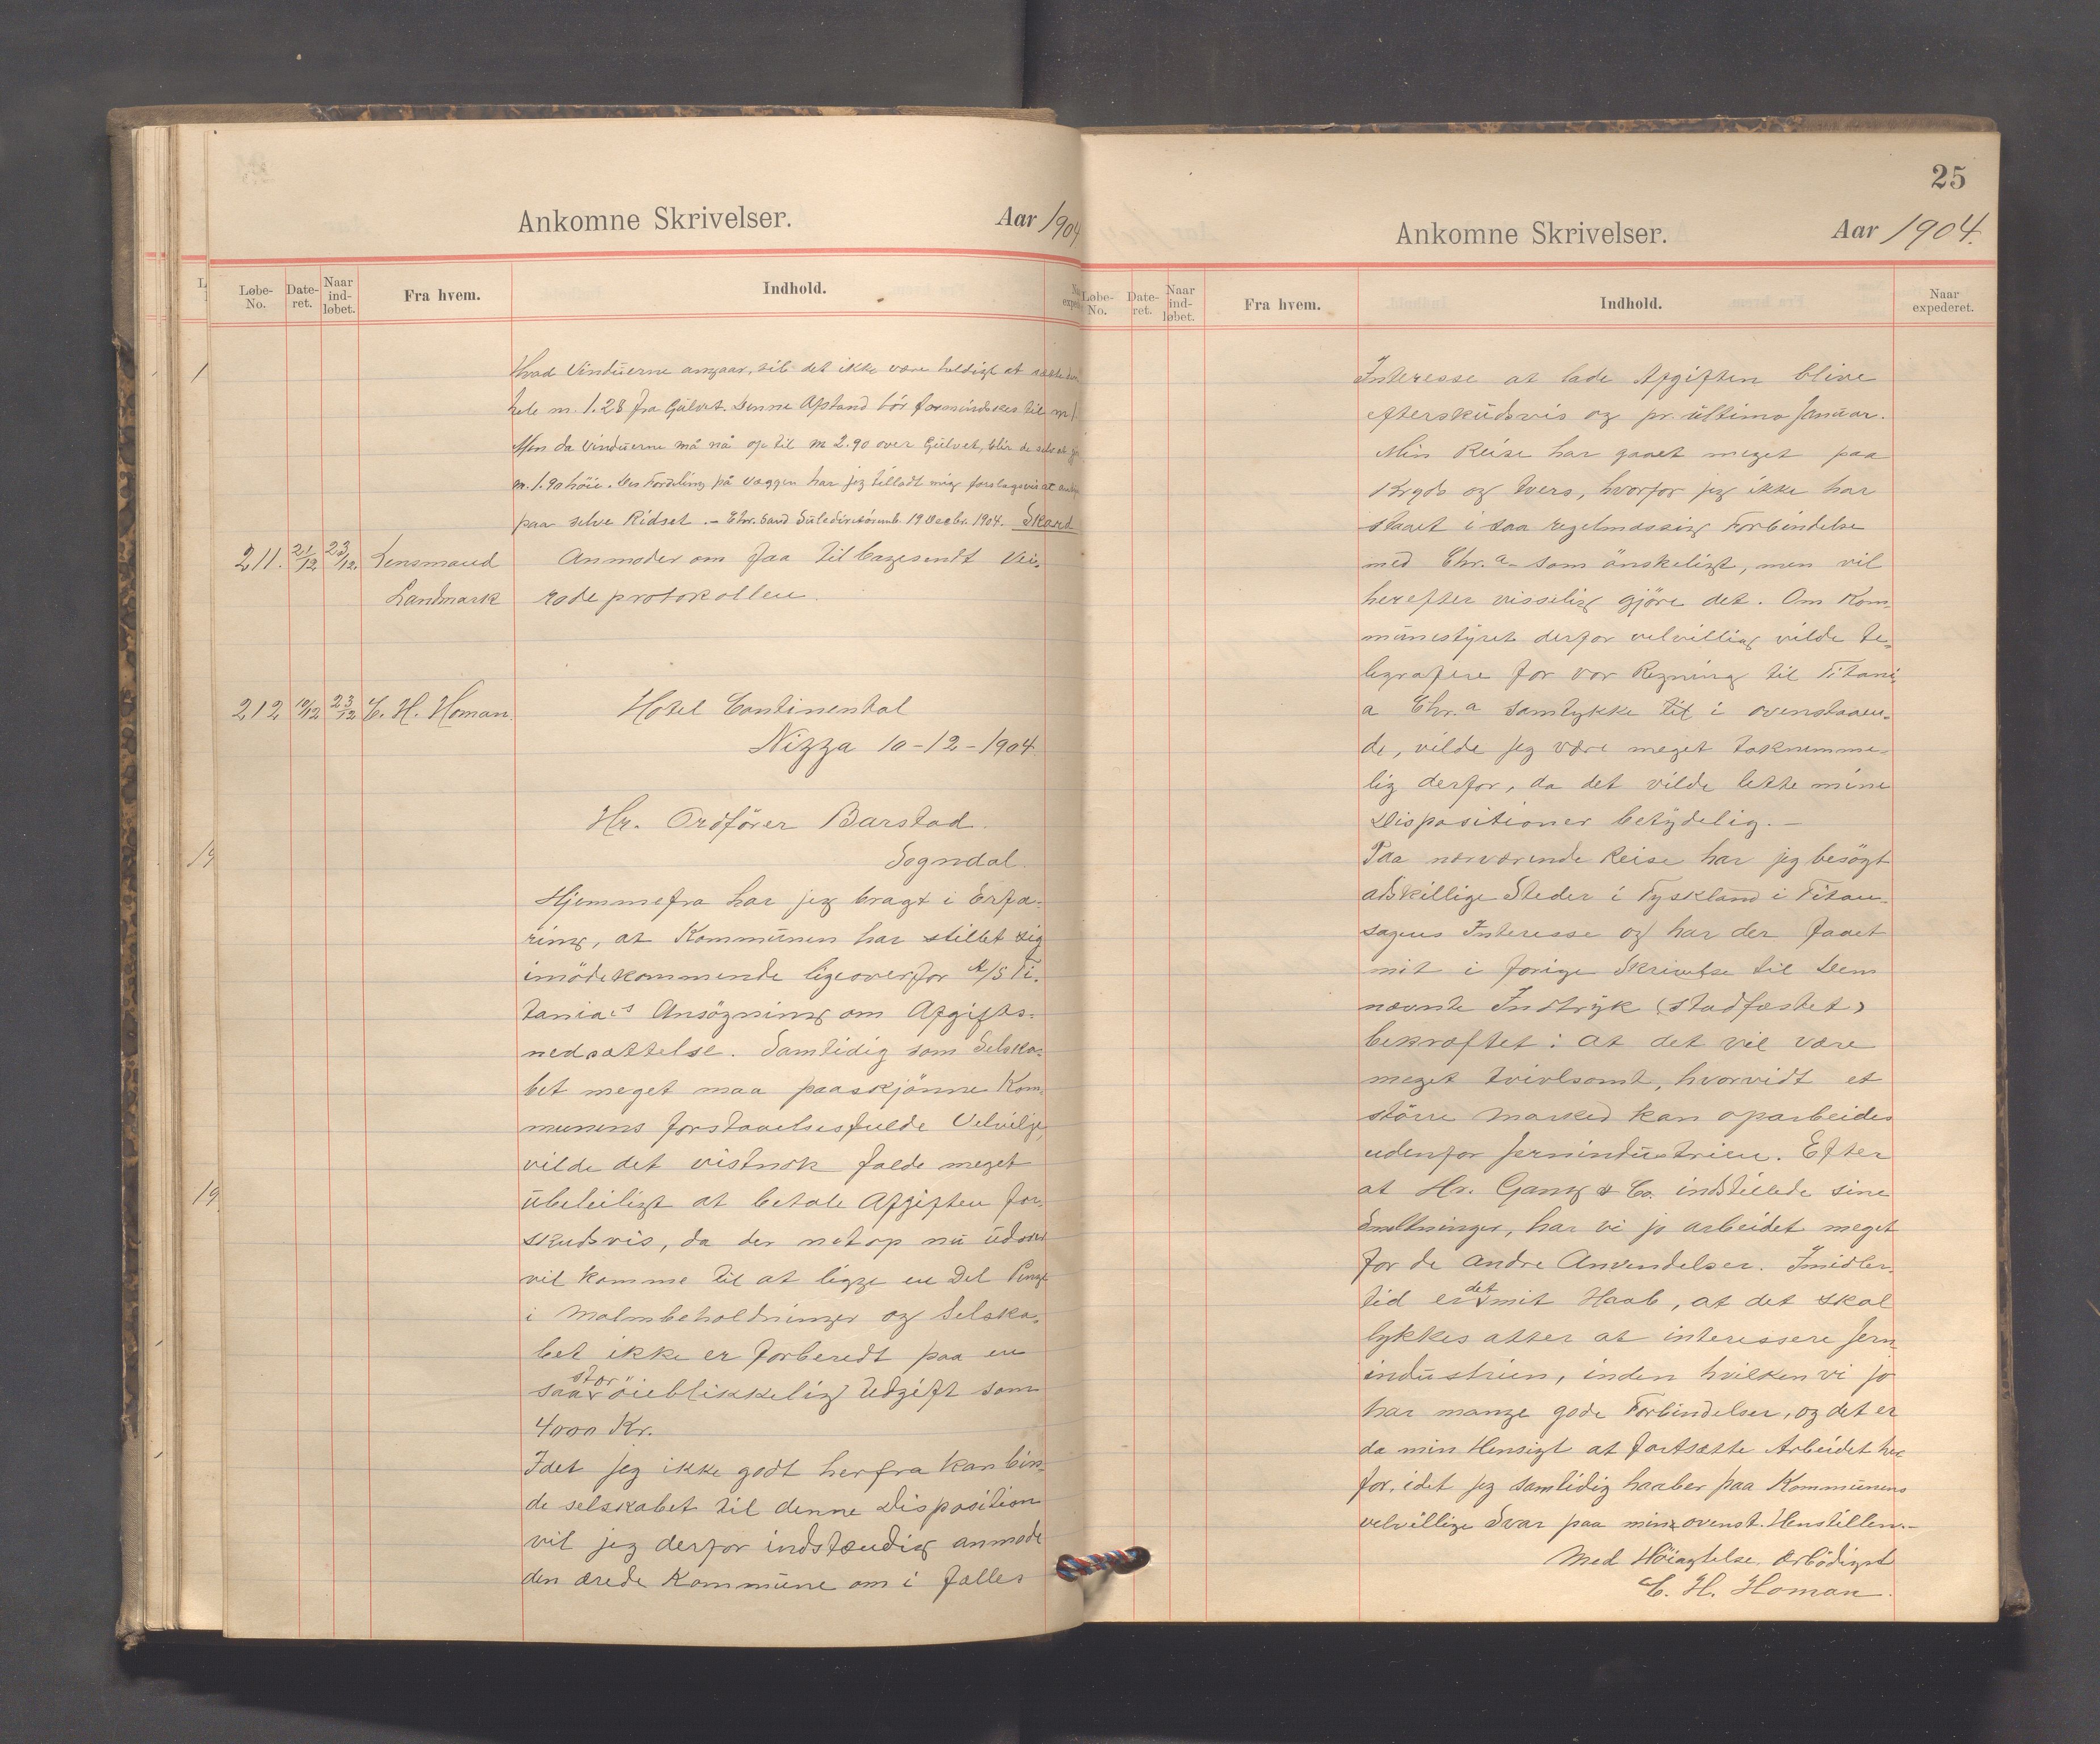 Ankomne Skrivelser.
Aar 1904
Løbe-No.
Date-ret.
Naar ind-løbet.
Fra hvem.
Indhold.
Hvad Vinduerne angaar, vil det ikke være heldigt at sætte dem
hele m. 1.28 fra Gulvet. Denne Afstand bör formindskes til m 1.
Men da Vinduerne må nå op til m 2.90 over Gulvet, blir de selv at
m. 1.90 höie. Den Fordeling på væggen har jeg tilladt mig forslagsvis at
paa selve Ridset. - Chr.sand 19 Decbr. 1904. Skard
211. 21/12 23/12. Lensmand Anmoder om faa tilbagesendt Vei-
Landmark rodeprotokollen.
212 10/12 23/12 C. H. Homan. Hotel Continental
Nizza 10-12-1904
Hr. Ordförer Barstad.
Sogndal.
Hjemmefra har jeg bragt i Erfa-
ring, at Kommunen har stillet sig
imödekommende ligeoverfor A/S Ti-
tania's Ansögning om Afgifts-
nedsættelse. Samtidig som Selska-
bet meget maa paaskjönne Kom-
munens forstaaelsesfulde Velvilje,
vilde det vistnok falde meget
übeleiligt at betale Afgiften for-
skudsvis, da der netop nu
vil komme til at ligge en Del Penge
i Malmbeholdninger og Selska-
bet ikke er forberedt paa en
saa stor öieblikkelig Udgift som
4000 Kr.
Idet jeg ikke godt herfra kan bin-
de selskabet til denne Disposition
vil jeg derfor indstændig anmode
den ærede Kommune om i fælles
25
Ankomne Skrivelser.
Aar 1904.
Løbe-No.
Date-ret.
Naar ind-løbet.
Fra hvem.
Indhold.
Naar expederet.
Interesse at lade Afgiften blive
efterskudsvis og pr. ultimo Januar.
Min Reise har gaaet meget paa
Kryds og tvers, hvorfor jeg ikke har
staaet i saa regelmæssig Forbindelse
med Chr.a som önskeligt, men vil
herefter visselig gjöre det. Om Kom-
munestyret derfor velvillig vilde te-
legrafere for vor Regning til Titani-
a Chr.a samtykke til i ovenstaaen-
de, vilde jeg være meget taknemme-
lig derfor, da det vilde lette mine
Dispositioner betydelig. -
Paa nærværende Reise har jeg besögt
adskillige Steder i Tyskland i Titan-
sagens Interesse og har der faaet
mit i forige Skrivelse til Dem
nævnte Indtryk (stadfæstet)
bekræftet: at det vil være
meget tvivlsomt, hvorvidt et
större Marked kan oparbeides
udenfor Jernindustrien. Efter
at Hr. Gang & Co. indstillede sine
Smeltninger, har vi jo arbeidet meget
for de andre Anvendelser. Imidler-
tid er det mit Haab, at det skal
lykkes atter at interessere Jern-
industrien, inden hvilken vi jo
har mange gode Forbindelser, og det er
da min Hensigt at fortsætte Arbeidet her
for, idet jeg samtidig haaber paa Kommunens
velvillige Svar paa min ovenst. Henstillen. -
Med Höiagtelse ærbödigst
C. H. Homan.